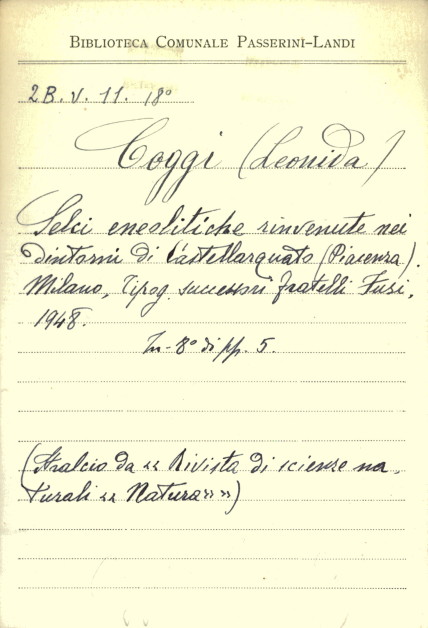 BIBLIOTECA COMUNALE PASSERINI-LANDI
2B. V. 11. 18°
Coggi (Leonida)
Selci eneolitiche rinvenute nei
dintorni di Castellarquato (Piacenza).
Milano, Tipog. successori fratelli Fusi,
1948.
In-8° di pp. 5.
(Stralcio da « Rivista di scienze na-
turali « Natura» »)